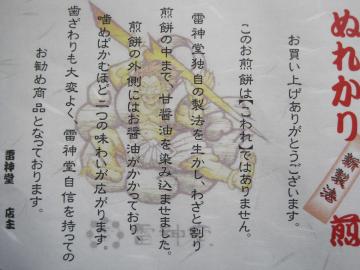 ぬれかり
煎
新製法
お買い上げありがとうございます。
このお煎餅は【こわれ】ではありません。
雷神堂独自の製法を生かし、わざと割り
煎餅の中まで、甘醤油を染み込ませました。
煎餅の外側にはお醤油がかかっており、
噛めばかむほど二つの味わいが広がります。
歯ざわりも大変よく、雷神堂自信を持っての
お勧め商品となっております。
雷神堂 店主